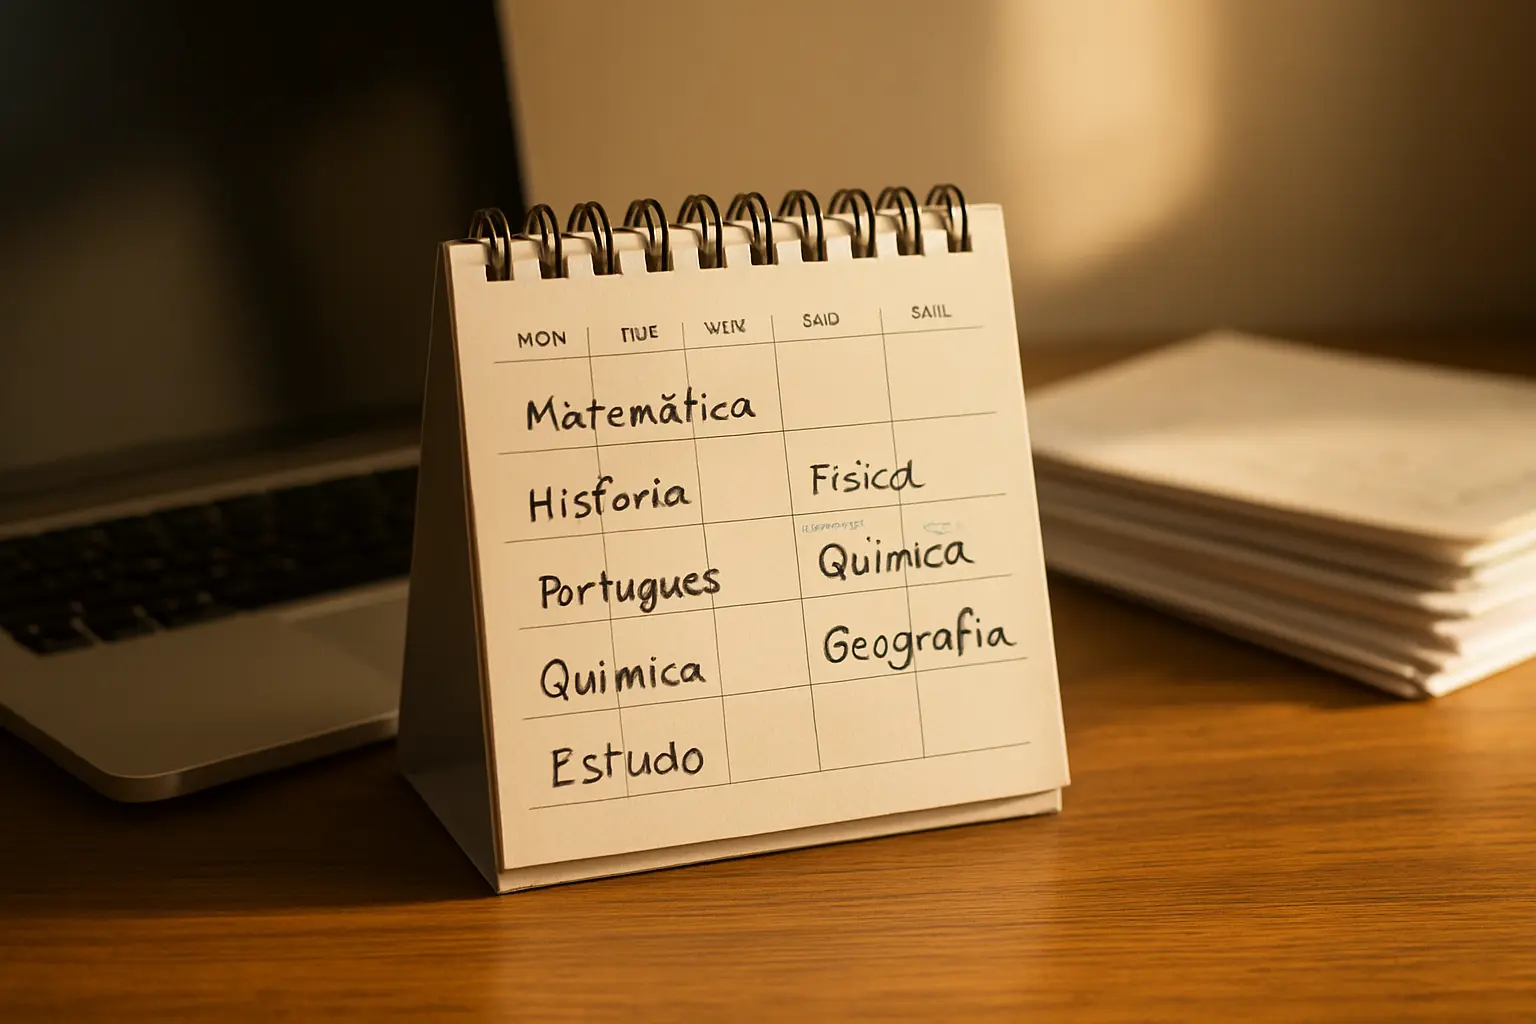 MON TIUE WEIK SAID SAIIL
Matemătica
Hisforia Fisica
Portugues Quimica
Quimica Geografia
Estudo